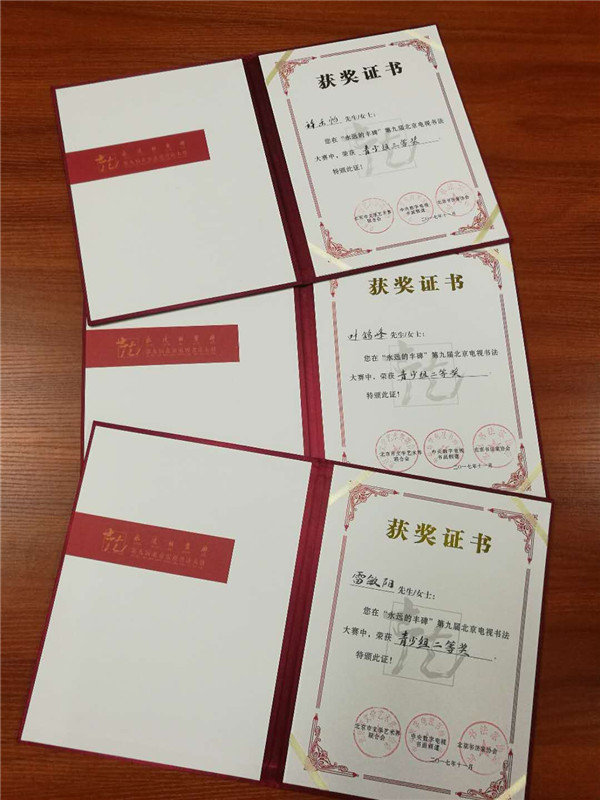 获奖证书
先生/女士：
您在“永远的丰碑”第九届北京电视书法
大赛中，荣获 青少组二等奖
特颁此证！
北京市文学艺术界
联合会
中央数字电视
书画频道
北京书法家协会
二〇一七年十一月
永远的丰碑
获奖证书
叶锦峰 先生/女士：
您在“永远的丰碑”第九届北京电视书法
大赛中，荣获 青少组二等奖
特颁此证！
北京市文学艺术界
联合会
中央数字电视
书画频道
北京书法家协会
二〇一七年十一月
永远的丰碑
获奖证书
雷敏阳 先生/女士：
您在“永远的丰碑”第九届北京电视书法
大赛中，荣获 青少组二等奖
特颁此证！
北京市文学艺术界
联合会
中央数字电视
书画频道
北京书法家协会
二〇一七年十一月